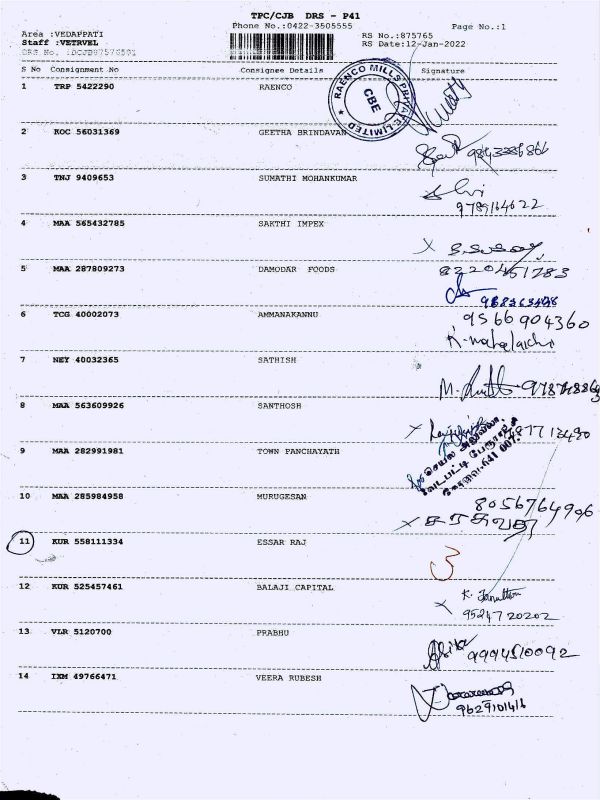 TPC/CJB DRS - P41
Phone No.:0422-3505555 Page No.:1
Area :VEDAPPATI RS No.:875765
Staff :VETRVEL RS Date:12-Jan-2022
DRS No.
S No Consignment No Consignee Details Signature
1 TRP 5422290 RAENCO
RAENCO MILLS PRIVATE LIMITED
CBE
2 KOC 56031369 GEETHA BRINDAVAN
3 TNJ 9409653 SUMATHI MOHANKUMAR
9789164622
4 MAA 565432785 SAKTHI IMPEX
8220451783
5 MAA 287809273 DAMODAR FOODS
6 TCG 40002073 AMMANAKANNU
9566904360
7 NEY 40032365 SATHISH
8 MAA 563609926 SANTHOSH
9 MAA 282991981 TOWN PANCHAYATH
செயல் அலுவலர்
வேடபட்டி பேரூராட்சி
கோவை-641 007.
10 MAA 285984958 MURUGESAN
8056764996
11 KUR 558111334 ESSAR RAJ
3
12 KUR 525457461 BALAJI CAPITAL
9524720202
13 VLR 5120700 PRABHU
9994510092
14 IXM 49766471 VEERA RUBESH
9629101416